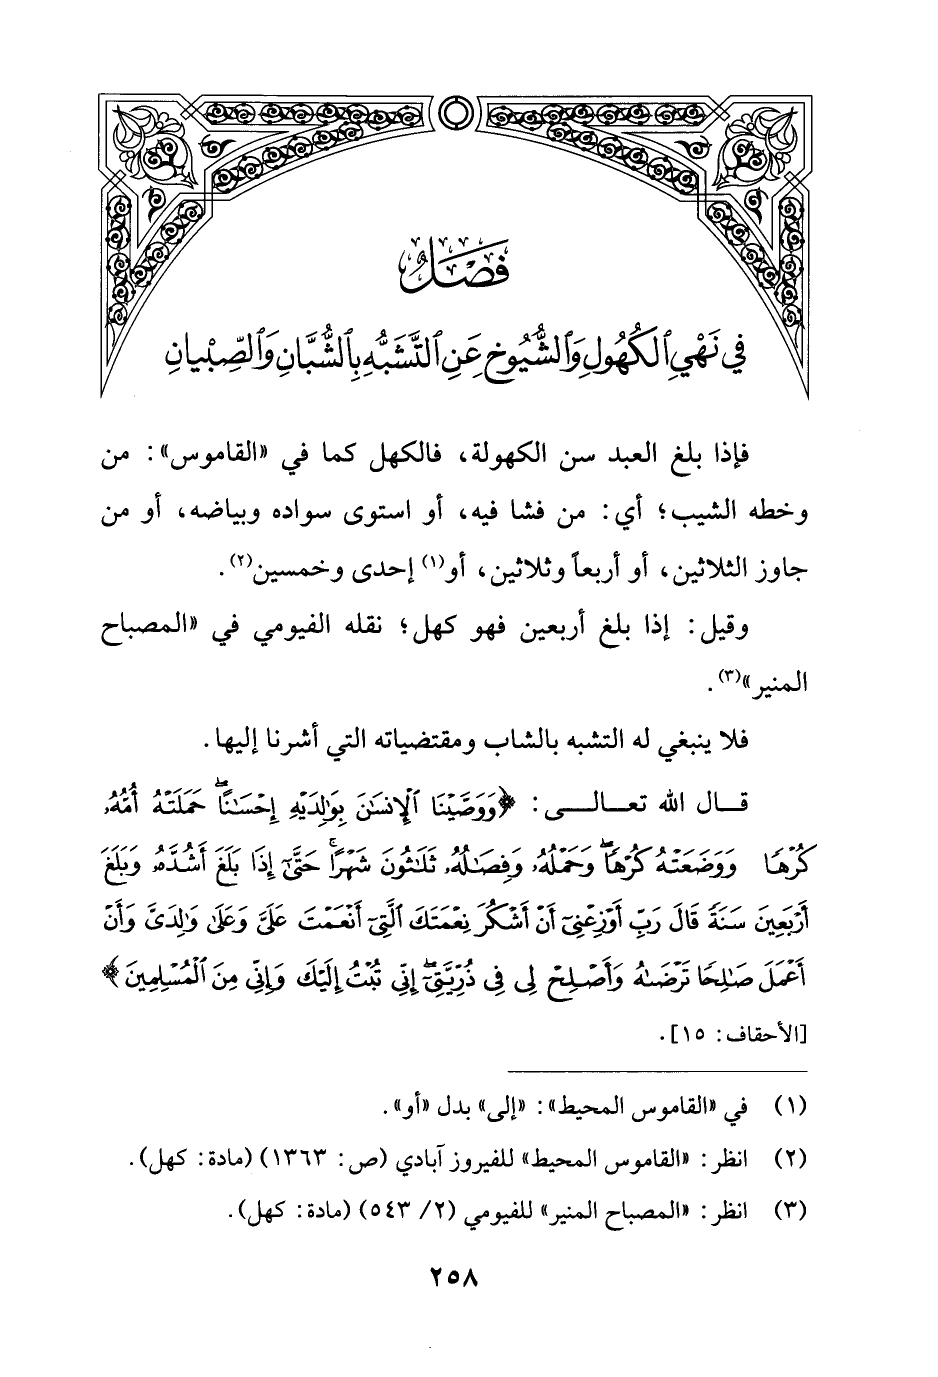 فَصْلٌ
فِي نَهْيِ ٱلْكُهُولِ وَٱلشُّيُوخِ عَنِ ٱلتَّشَبُّهِ بِٱلشُّبَّانِ وَٱلصِّبْيانِ
فإذا بلغ العبد سن الكهولة، فالكهل كما في «القاموس»: من
وخطه الشيب؛ أي: من فشا فيه، أو استوى سواده وبياضه، أو من
جاوز الثلاثين، أو أربعاً وثلاثين، أو(١) إحدى وخمسين(٢).
وقيل: إذا بلغ أربعين فهو كهل؛ نقله الفيومي في «المصباح
المنير»(٣).
فلا ينبغي له التشبه بالشاب ومقتضياته التي أشرنا إليها.
قـال الله تعـالـى: ﴿وَوَصَّيْنَا ٱلْإِنسَٰنَ بِوَٰلِدَيْهِ إِحْسَٰنًا ۖ حَمَلَتْهُ أُمُّهُۥ
كُرْهًا وَوَضَعَتْهُ كُرْهًا ۖ وَحَمْلُهُۥ وَفِصَٰلُهُۥ ثَلَٰثُونَ شَهْرًا ۚ حَتَّىٰٓ إِذَا بَلَغَ أَشُدَّهُۥ وَبَلَغَ
أَرْبَعِينَ سَنَةً قَالَ رَبِّ أَوْزِعْنِىٓ أَنْ أَشْكُرَ نِعْمَتَكَ ٱلَّتِىٓ أَنْعَمْتَ عَلَىَّ وَعَلَىٰ وَٰلِدَىَّ وَأَنْ
أَعْمَلَ صَٰلِحًا تَرْضَىٰهُ وَأَصْلِحْ لِى فِى ذُرِّيَّتِىٓ ۖ إِنِّى تُبْتُ إِلَيْكَ وَإِنِّى مِنَ ٱلْمُسْلِمِينَ﴾
[الأحقاف: ١٥].
(١) في «القاموس المحيط»: «إلى» بدل «أو».
(٢) انظر: «القاموس المحيط» للفيروز آبادي (ص: ١٣٦٣) (مادة: كهل).
(٣) انظر: «المصباح المنير» للفيومي (٢/ ٥٤٣) (مادة: كهل).
٢٥٨